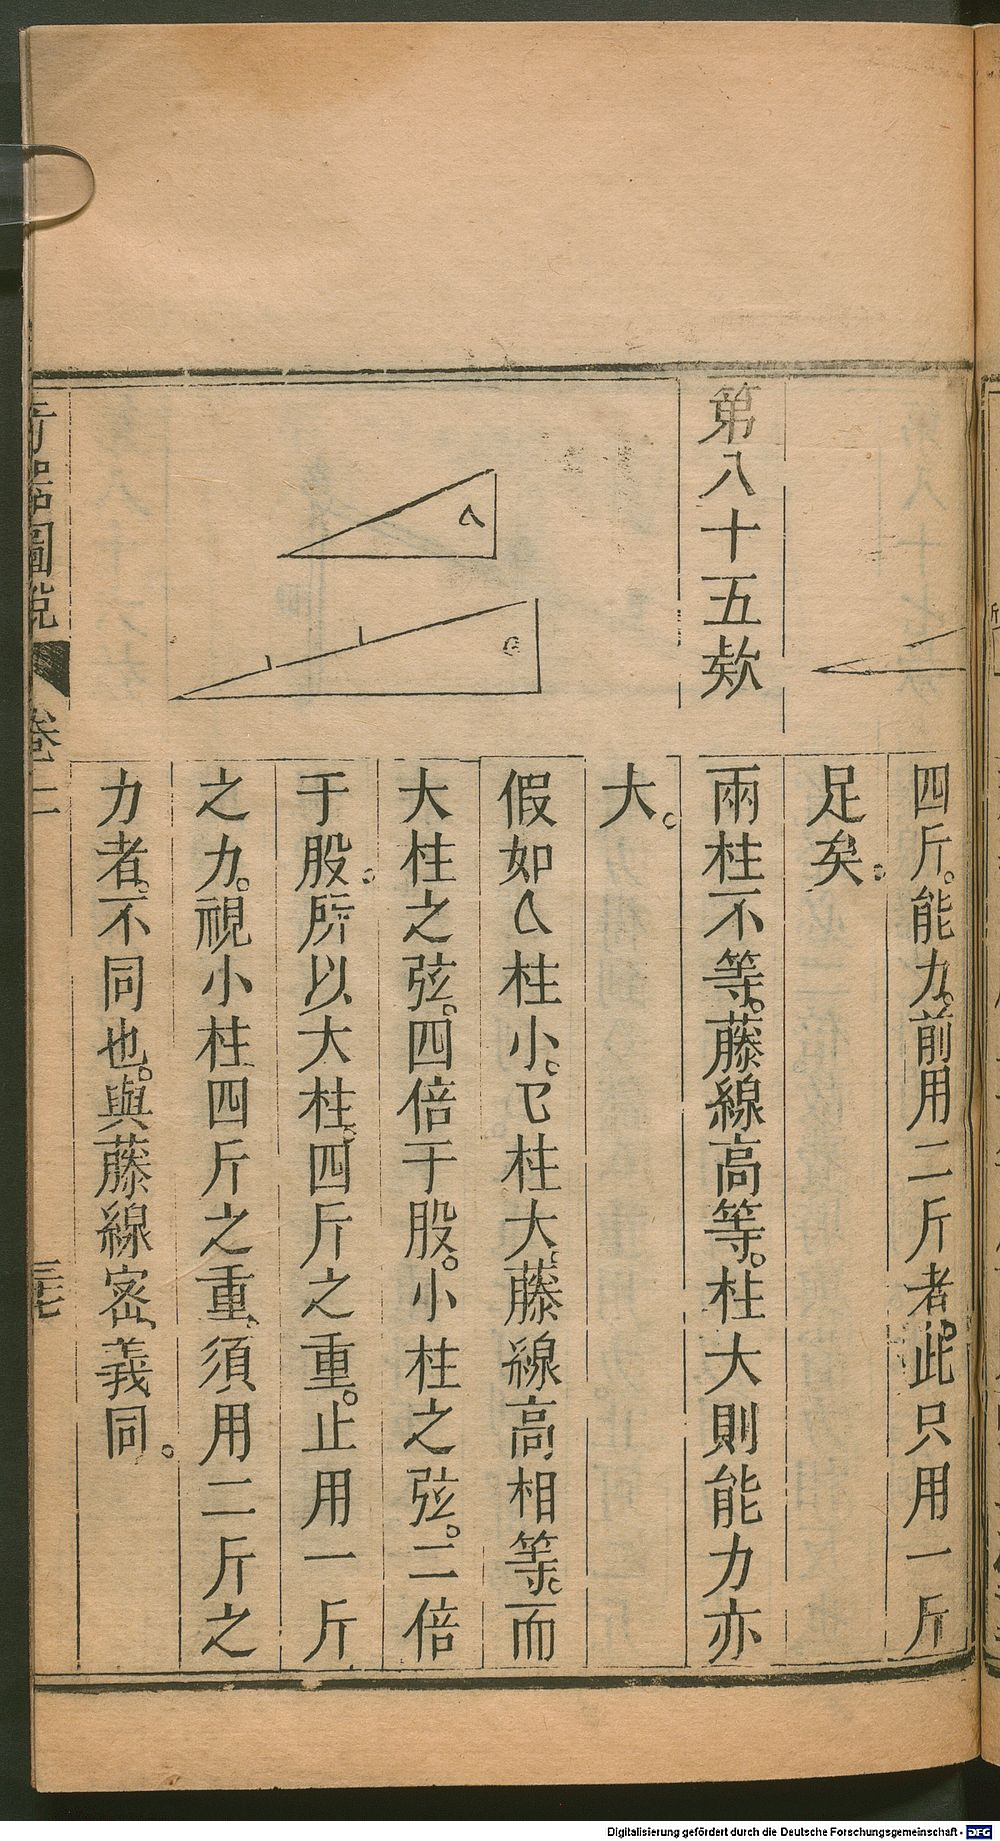 四斤。能力。前用二斤者。此只用一斤
足矣。
第八十五欵
兩柱不等。藤線高等。柱大則能力亦
大。
假如𠆤柱小。㔾柱大。藤線高相等。而
大柱之弦。四倍于股。小柱之弦。二倍
于股。所以大柱。四斤之重。止用一斤
之力。視小柱四斤之重、須用二斤之
力者。不同也。與藤線密、義同。
圖說
卷二
三七
Digitalisierung gefördert durch die Deutsche Forschungsgemeinschaft - DFG